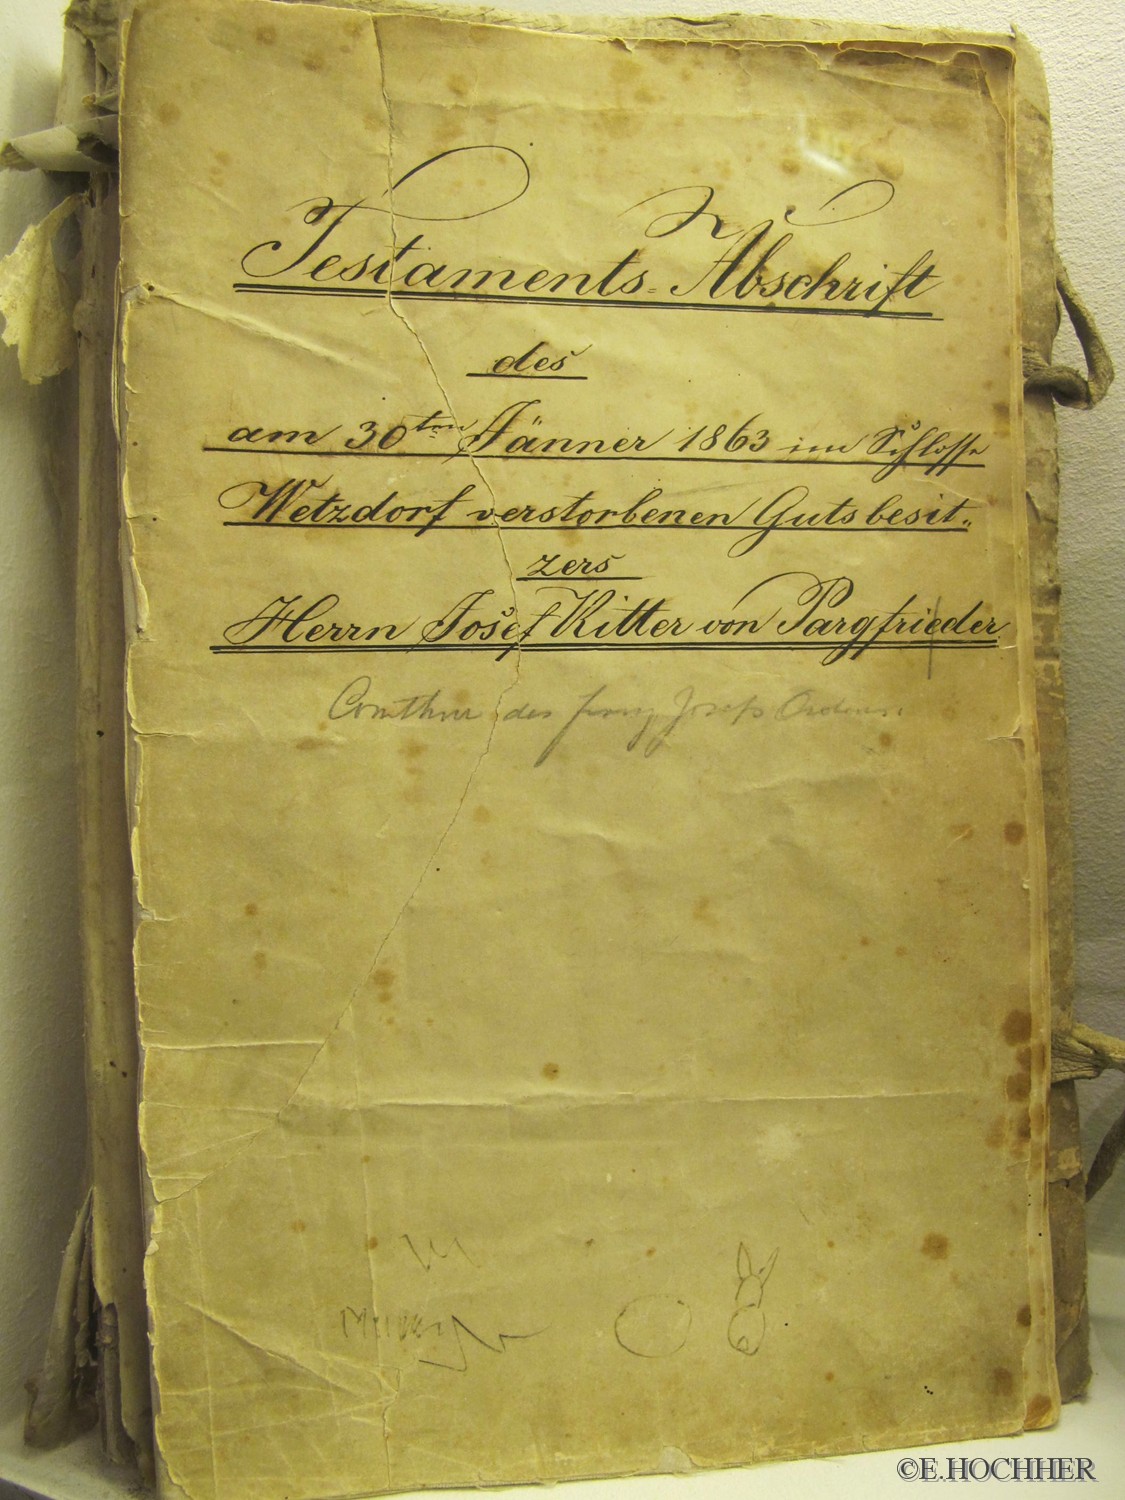 Testaments=Abschrift
des
am 30ten Jänner 1863 im Schlosse
Wetzdorf verstorbenen Gutsbesit„
zers
Herrn Josef Ritter von Pargfrieder
Comthur des Franz Josefs Ordens.
©E.HOCHHER